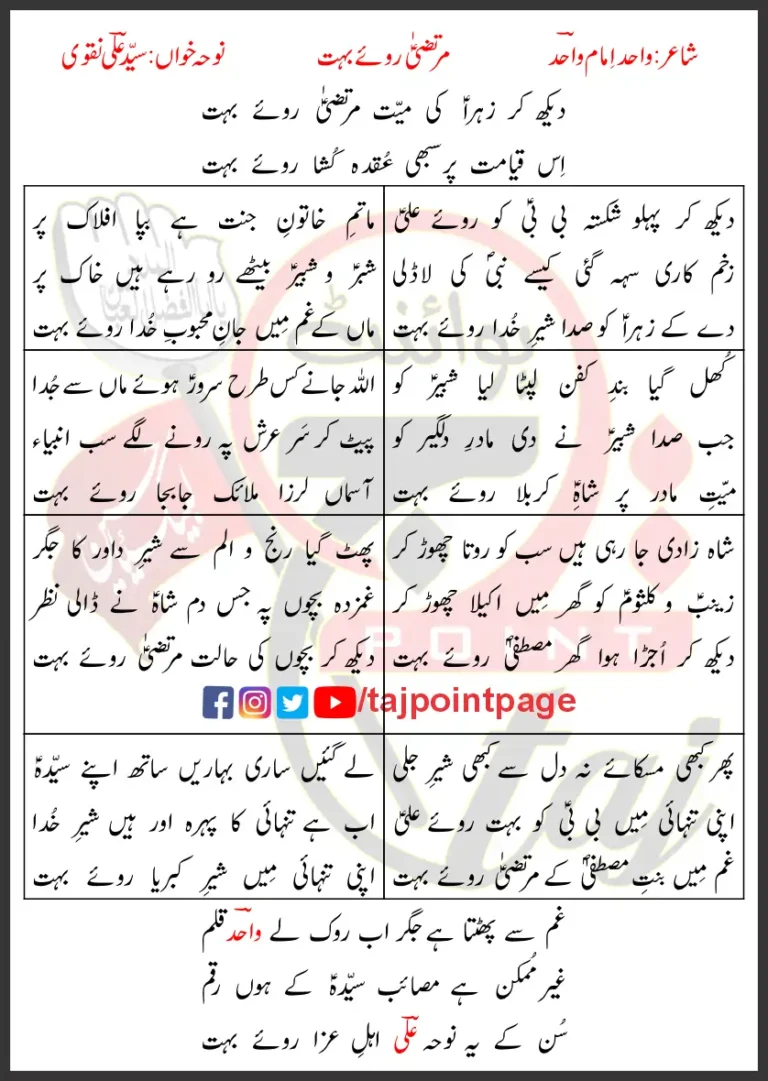 شاعر:واحد اِمام واحدؔ مرتضیٰؑ روئے بہت نوحہ خواں:سیّد علؔی نقوی
دیکھ کر زہراؑ کی میّت مرتضیٰؑ روئے بہت
اِس قیامت پر سبھی عُقدہ کُشا روئے بہت
دیکھ کر پہلو شکستہ بی بیؑ کو روئے علیؑ
زخم کاری سہہ گئی کیسے نبیؐ کی لاڈلی
دے کے زہراؑ کو صدا شیرِ خُدا روئے بہت
ماتمِ خاتونِ جنت ہے بپا افلاک پر
شبرؑ و شبیرؑ بیٹھے رو رہے ہیں خاک پر
ماں کے غم مِیں جانِ محبوبِ خُدا روئے بہت
کُھل گیا بندِ کفن لِپٹا لیا شبیرؑ کو
جب صدا شبیرؑ نے دی مادرِ دلگیر کو
میّتِ مادر پر شاہِؑ کربلا روئے بہت
اللہ جانے کس طرح سرورؑ ہوئے ماں سے جُدا
پیٹ کر سَر عرش پہ رونے لگے سب انبیاء
آسماں لرزا ملائک جابجا روئے بہت
شاہ زادی جا رہی ہیں سب کو روتا چھوڑ کر
زینبؑ و کلثومؑ کو گھر مِیں اکیلا چھوڑ کر
دیکھ کر اُجڑا ہوا گھر مصطفیٰؐ روئے بہت
پھٹ گیا رنج و الم سے شیرِ داور کا جگر
غمزدہ بچوں پہ جس دم شاہؑ نے ڈالی نظر
دیکھ کر بچوں کی حالت مرتضیٰؑ روئے بہت
/tajpointpage
پھر کبھی مسکائے نہ دل سے کبھی شیرِ جلی
اپنی تنہائی مِیں بی بیؑ کو بہت روئے علیؑ
غم مِیں بنتِ مصطفیٰؐ کے مرتضیٰؑ روئے بہت
لے گئیں ساری بہاریں ساتھ اپنے سیّدہؑ
اب ہے تنہائی کا پہرہ اور ہیں شیرِ خُدا
اپنی تنہائی مِیں شیرِ کبریا روئے بہت
غم سے پھٹتا ہے جگر اب روک لے واحدؔ قلم
غیر مُمکن ہے مصائب سیّدہؑ کے ہوں رقم
سُن کے یہ نوحہ علؔی اہلِ عزا روئے بہت
پوائنٹ
POINT
taj